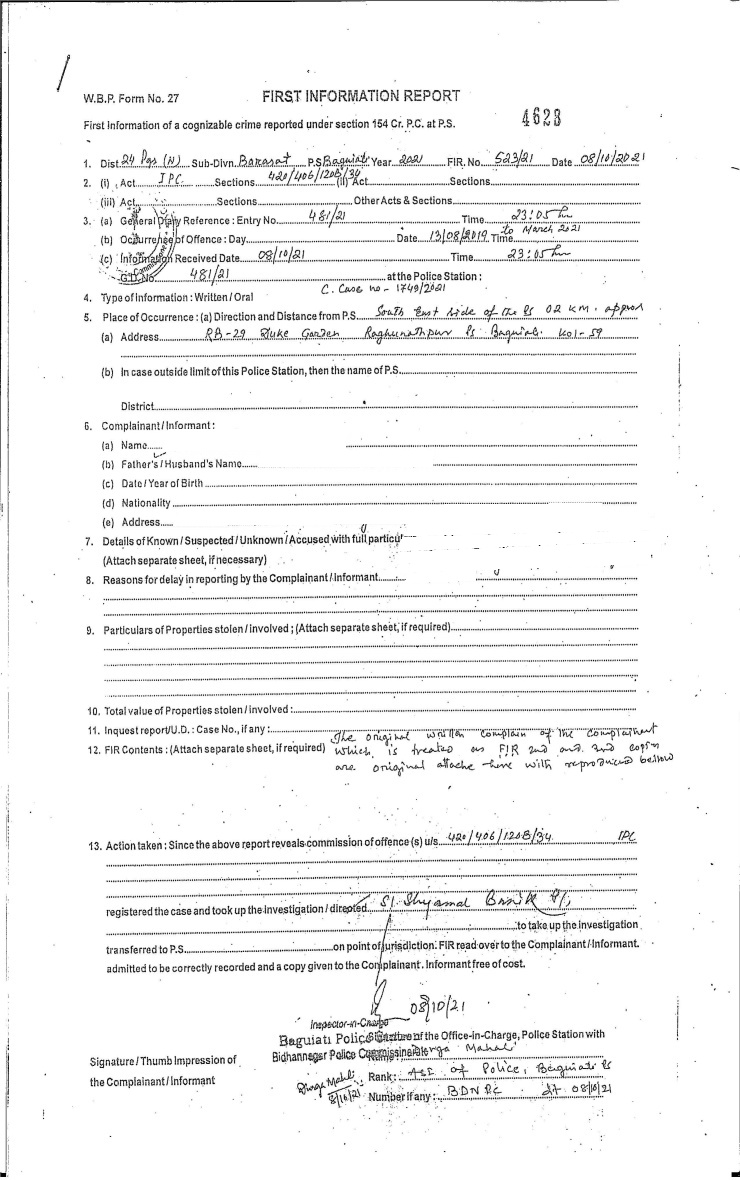 W.B.P. Form No. 27 FIRST INFORMATION REPORT 4628
First Information of a cognizable crime reported under section 154 Cr. P.C. at P.S.
1. Dist. 24 Pgs (N) Sub-Divn. Barasat P.S. Baguiati Year 2021 FIR. No. 523/21 Date 08/10/2021
2. (i) Act IPC Sections 420/406/120B/34 (ii) Act Sections
(iii) Act Sections Other Acts & Sections
3. (a) General Diary Reference : Entry No. 481/21 Time 23:05 hr
(b) Occurrence of Offence : Day Date 13/08/2019 Time to March 2021
(c) Information Received Date 08/10/21 Time 23:05 hr
G.D. No. 481/21 at the Police Station :
C. Case no - 1749/2021
4. Type of Information : Written / Oral
5. Place of Occurrence : (a) Direction and Distance from P.S. South East side of the PS 02 KM. approx
(a) Address RB-29 Duke Garden Raghunathpur PS Baguiati. Kol-59
(b) In case outside limit of this Police Station, then the name of P.S.
District
6. Complainant / Informant :
(a) Name
(b) Father's / Husband's Name
(c) Date / Year of Birth
(d) Nationality
(e) Address
7. Details of Known / Suspected / Unknown / Accused with full particu
(Attach separate sheet, if necessary)
8. Reasons for delay in reporting by the Complainant / Informant
9. Particulars of Properties stolen / involved ; (Attach separate sheet, if required)
10. Total value of Properties stolen / involved :
11. Inquest report/U.D. : Case No., if any :
The original written complain of the complainent
12. FIR Contents : (Attach separate sheet, if required) which is treated as FIR and and 2nd copies
are original attache here with reproduced bellow
13. Action taken : Since the above report reveals commission of offence (s) u/s 420/406/120B/34 IPC
registered the case and took up the Investigation / directed SI Shyamal
to take up the investigation
transferred to P.S. on point of jurisdiction. FIR read over to the Complainant / Informant.
admitted to be correctly recorded and a copy given to the Complainant. Informant free of cost.
08/10/21
Inspector-in-Charge
Baguiati Police Station of the Office-in-Charge, Police Station with
Bidhannagar Police Commissionerate Mahali
Signature / Thumb Impression of
the Complainant / Informant
Rank : ASI of Police, Baguiati PS
8/10/21 Number if any : BDN PC dt 08/10/21